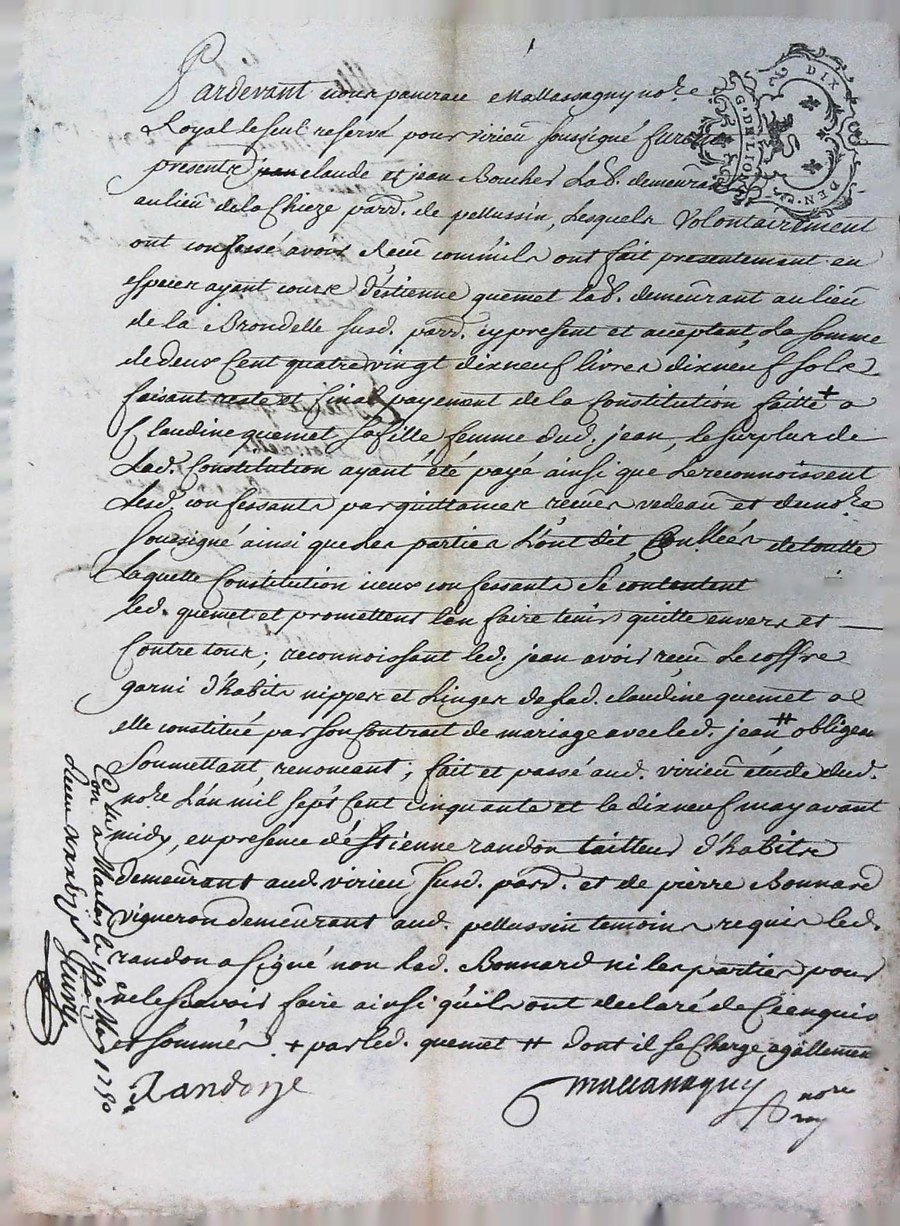 Pardevant nous pancrace Mallassagny no.re
Royal le seul reservé pour virieu soussigné furent
presents claude et jean Boucher Lab. demeurants
au lieu de la Chieze parr. de pellussin, Lesquels Volontairement
ont confessé avoir Receu comm'ils ont fait presentement en
especes ayant cours d'estienne quemet lab. demeurant au lieu
de la Brondelle susd. parr. cy present et acceptant, La somme
de deux Cent quatre vingt dixneuf livres dixneuf sols
faisant reste et final payement de la Constitution faitte + a
Claudine quemet sa fille femme dud. jean, le surplus de
Lad. Constitution ayant été payé ainsi que Le reconnoissent
Lesd. confessants par quittances receues vedeau et du no.re
Soussigné ainsi que Les parties L'ont dit, de toutte
Laquelle Constitution iceux confessants Se contentent
led. quemet et promettent l'en faire tenir quitte envers et
Contre tous; reconnoissant led. jean avoir reçu Le coffre
garni d'habits nippes et Linges de Lad. claudine quemet a
elle constitué par son Contrat de mariage avec led. jean ++ obligeant
Soumettant, renoncant; fait et passé aud. virieu étude dud.
no.re L'an mil sept Cent cinquante et le dixneuf may avant
midy, en presence d'Estienne randon tailleur d'habits
demeurant aud. virieu susd. parr. et de pierre Bonnard
vigneron demeurant aud. pellussin temoins requis led.
randon a signé non led. Bonnard ni les parties pour
ne le scavoir faire ainsi qu'ils ont declaré de Ce enquis
et sommés. + par led. quemet ++ dont il se Charge egallement
Randon
mallassagny no.re
roy
Con. a Malas le 19 May 1750
Receu
G. DE LION
DIX
DEN.